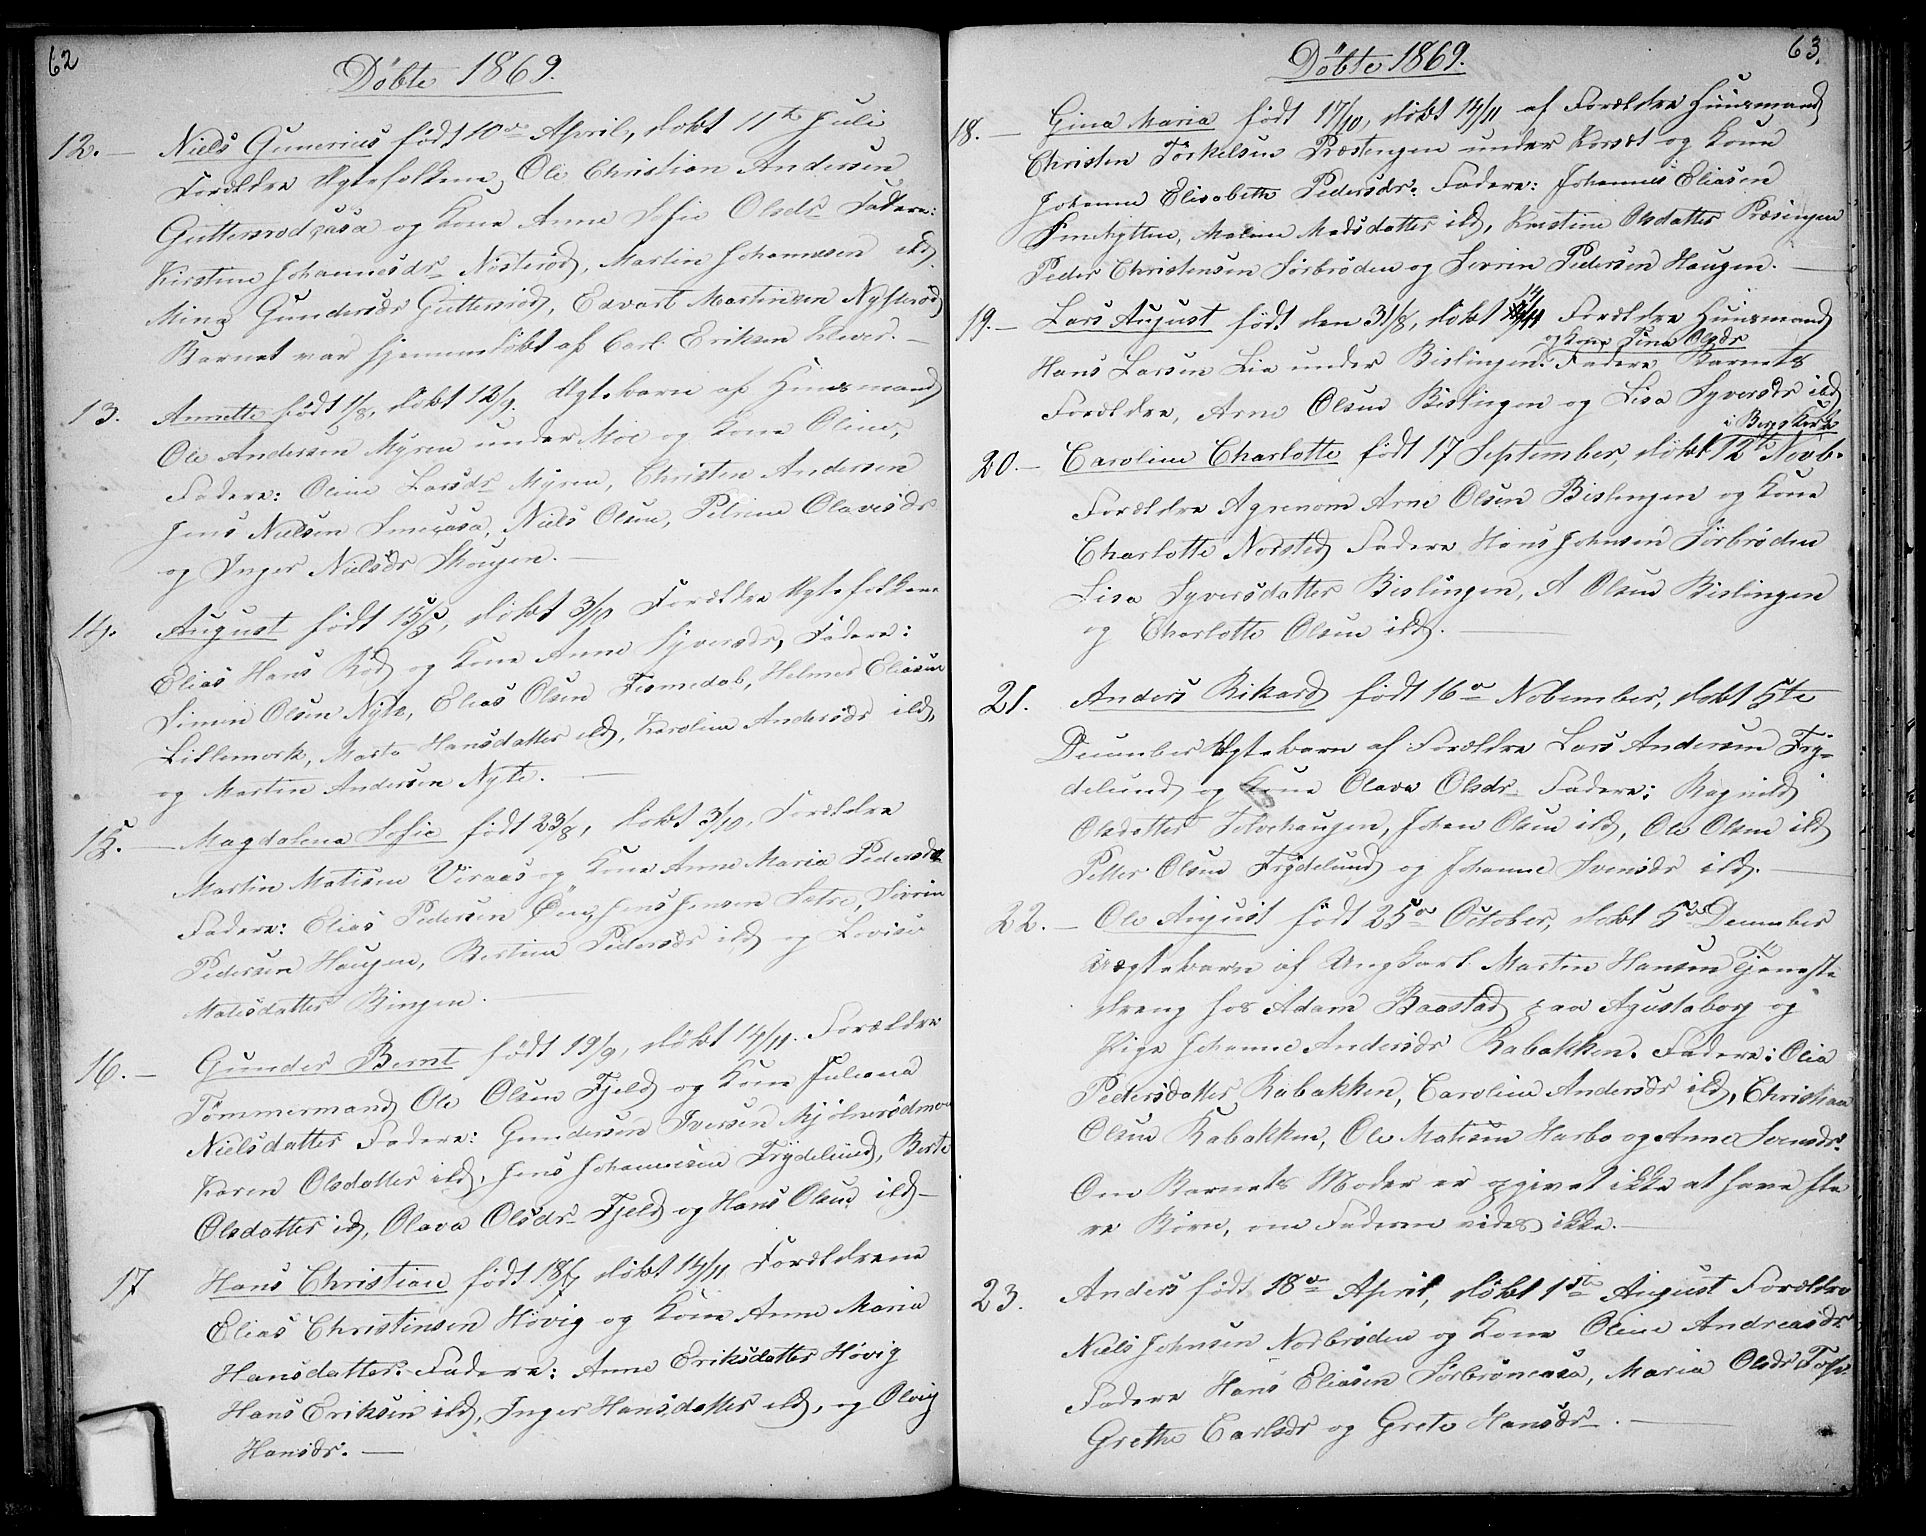 62
Döbte 1869.
12. — Niels Gunerius født 10de April, döbt 11te Juli
Forældre Ægtefolkene Ole Christian Andersen
Guttersrodsaasa og Kone Anne Sofie Olsdr Faddere:
Kirstine Johannesdr Nosterød, Martin Johannesen ibd,
Mina Gundersdr Guttersrød, Edvart Martinsen Nysterød
Barnet var hjemmedöbt af Carl Eriksen Klever. —
13. Annette født 1/8, döbt 12/9. Ægtebarn af Huusmand
Ole Andersen Myren under Moe og Kone Oline,
Faddere: Oline Larsdr Myren, Christen Andersen
Jens Nielsen Smeaasa, Niels Olsen, Petrine Olavesdr
og Inger Nielsdr Skougen. —
14. August født 15/5, döbt 3/10 Forældre Ægtefolkene
Elias Hans Rød og Kone Anne Syversdr, Faddere:
Simen Olsen Nyte, Elias Olsen Tesmedal, Helmer Eliasen
Lillemork, Marta Hansdatter ibd, Karoline Andersdr ibd,
og Martin Andersen Nyte. —
15. — Magdalena Sofie født 23/8, döbt 3/10. Forældre
Martin Matisen Viraas og Kone Anne Maria Pedersdr
Faddere: Elias Pedersen Öen, Jens Jensen Sætre, Sivrin
Pedersen Haugen, Bertine Pedersdr ibd og Lovise
Matisdatter Bingen. —
16. — Gunder Bernt født 19/9, döbt 14/11. Forældre
Tömmermand Ole Olsen Fjeld og Kone Juliana
Nielsdatter Faddere: Gundersen Iversen Mjölnerödmoen
Karen Olsdatter ibd, Jens Johannesen Frydelund, Berte
Olsdatter ibd, Olava Olsdr Fjeld og Hans Olsen ibd —
17 Hans Christian født 18/7 döbt 14/11 Forældrene
Elias Christensen Hövig og Kone Anne Maria
Hansdatter. Faddere: Anne Eriksdatter Hövig
Hans Eriksen ibd, Inger Hansdatter ibd, og Olvig
Hansdr. —
63.
Döbte 1869.
18. — Gina Maria født 17/10, döbt 14/11 af Forældre Huusmand
Christen Torkelsen Præstengen under Korsæt og Kone
Johanne Elisabeth Pedersdr. Faddere: Johannes Eliasen
Smehytten, Maline Madsdatter ibd, Kristine Olsdatter Præsingen
Peder Christensen Sørbröden og Sivrin Pedersen Haugen. —
19. — Lars August født den 31/8, döbt 14/11 Forældre Huusmand
og Kone Tina Olsdr
Hans Larsen Lie under Bislingen. Faddere Barnets
Forældre, Arne Olsen Bislingen og Lisa Syversdr ibd
i Berg Kirke
20. — Caroline Charlotte født 17 September, döbt 12te Novb.
Forældre Agronom Arne Olsen Bislingen og Kone
Charlotte Norsted Faddere Hans Johnsen Sörbröden
Lisa Syversdatter Bislingen, A Olsen Bislingen
og Charlotte Olsen ibd. —
21. Anders Rikard født 16de November, döbt 5te
December Ægtebarn af Forældre Lars Andersen Fry-
delund og Kone Olava Olsdr Faddere: Ragnild
Olsdatter Tolvehaugen, Johan Olsen ibd, Ole Olsen ibd
Petter Olsen Frydelund og Johanne Svensdr ibd. —
22. — Ole August født 25de October, döbt 5te December
Uægtebarn af Ungkarl Martin Hansen Tjeneste
dreng hos Adam Baastad paa Agustaborg og
Pige Johanne Andersdr Kabakken. Faddere: Olia
Pedersdatter Kabakken, Caroline Andersdr ibd, Christian
Olsen Kabakken, Ole Matisen Harbo og Anne Svensdr.
Om Barnets Moder er opgivet ikke at have fle
re Börn, om Faderen vides ikke. —
23. Anders født 18de April, döbt 1ste August Forældre
Niels Johnsen Norbröden og Kone Oline Andreasdr
Faddere Hans Eliasen Sörbröneaasa, Maria Olsdr Tofte.
Grethe Carlsdr og Grete Hansdr. —